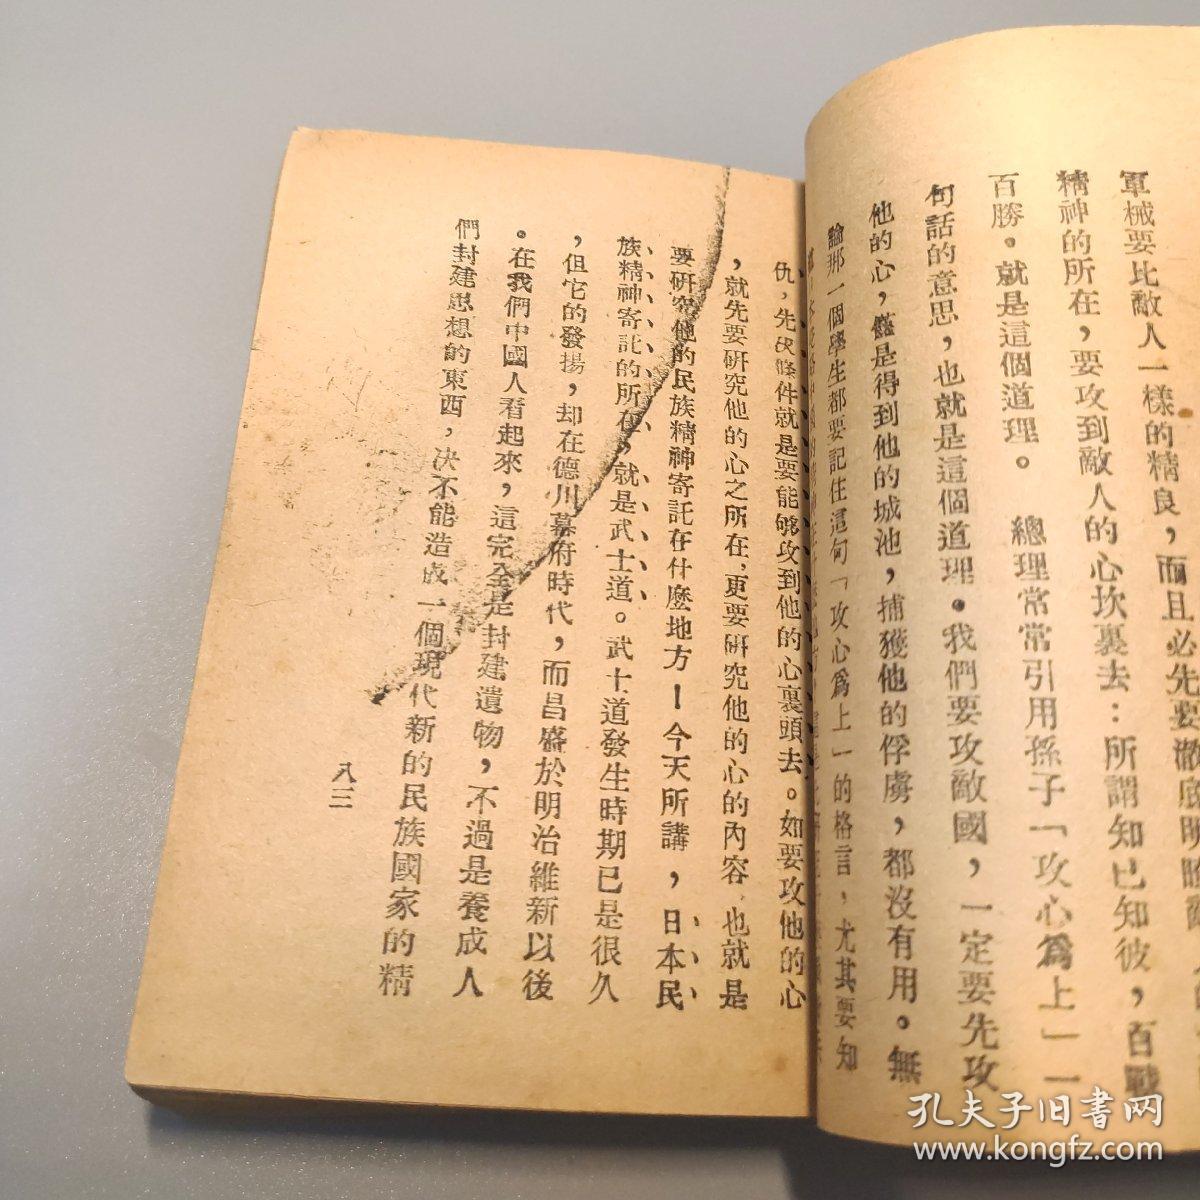 軍械要比敵人一樣的精良，而且必先要澈底明瞭敵
精神的所在，要攻到敵人的心坎裏去：所謂知已知彼，百戰
百勝。就是這個道理。總理常常引用孫子「攻心爲上」一
句話的意思，也就是這個道理。我們要攻敵國，一定要先攻
他的心，儘是得到他的城池，捕獲他的俘虜，都沒有用。無
論那一個學生都要記住這句「攻心爲上」的格言，尤其要知
仇，先伏條件就是要能够攻到他的心裏頭去。如要攻他的心
，就先要研究他的心之所在，更要研究他的心的內容，也就是
要研究他的民族精神寄託在什麼地方！今天所講，日本民
族精神寄託的所在，就是武士道。武士道發生時期已是很久
，但它的發揚，却在德川幕府時代，而昌盛於明治維新以後
。在我們中國人看起來，這完全是封建遺物，不過是養成人
們封建思想的東西，决不能造成一個現代新的民族國家的精
八三
孔夫子旧书网
www.kongfz.com